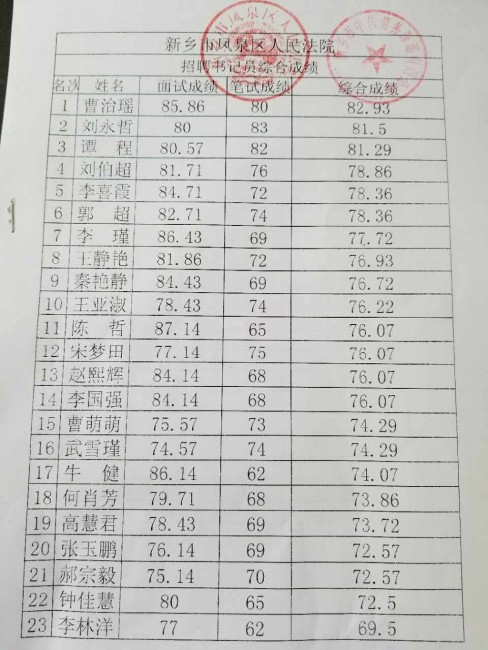 新乡市凤泉区人民法院
招聘书记员综合成绩
名次 姓名 面试成绩 笔试成绩 综合成绩
1 曹治瑶 85.86 80 82.93
2 刘永哲 80 83 81.5
3 谭程 80.57 82 81.29
4 刘伯超 81.71 76 78.86
5 李喜霞 84.71 72 78.36
6 郭超 82.71 74 78.36
7 李瑾 86.43 69 77.72
8 王静艳 81.86 72 76.93
9 秦艳静 84.43 69 76.72
10 王亚淑 78.43 74 76.22
11 陈哲 87.14 65 76.07
12 宋梦田 77.14 75 76.07
13 赵熙辉 84.14 68 76.07
14 李国强 84.14 68 76.07
15 曹萌萌 75.57 73 74.29
16 武雪瑾 74.57 74 74.29
17 牛健 86.14 62 74.07
18 何肖芳 79.71 68 73.86
19 高慧君 78.43 69 73.72
20 张玉鹏 76.14 69 72.57
21 郝宗毅 75.14 70 72.57
22 钟佳慧 80 65 72.5
23 李林洋 77 62 69.5